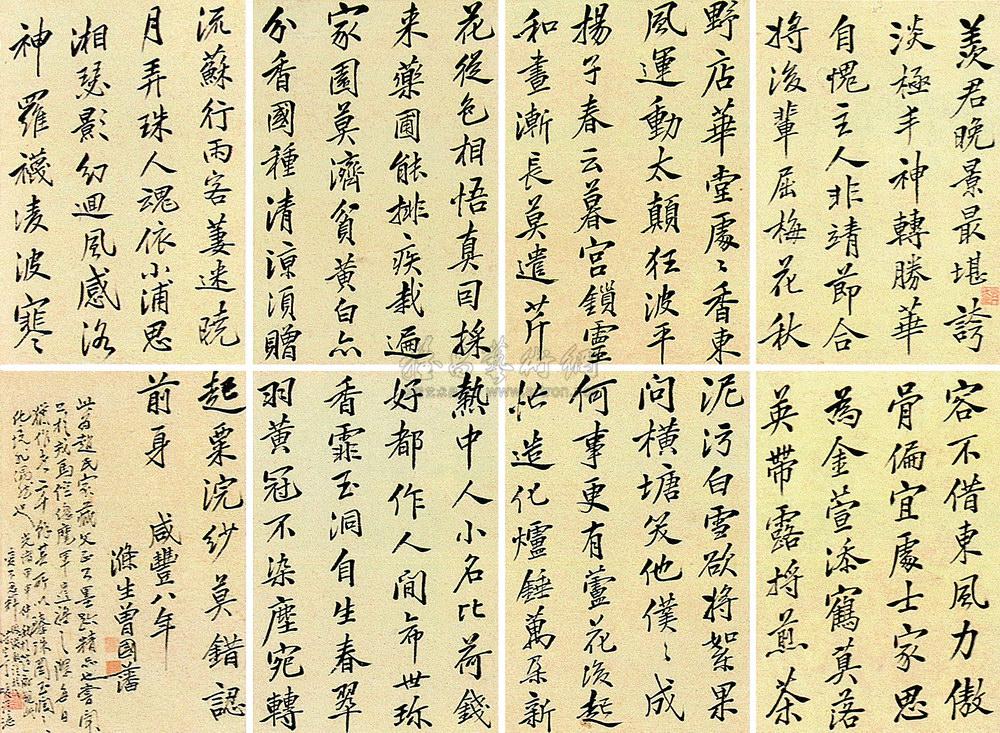 羨君晚景最堪誇
淡極丰神轉勝華
自愧主人非靖節合
將後輩屈梅花秋
容不借東風力傲
骨偏宜處士家思
為金萱添鶴莫落
英帶露將煎茶
野店華堂處〻香東
風運動太顛狂波平
揚子春云暮宮鎖靈
和晝漸長莫遣芹
泥污白雪欲將絮果
問橫塘笑他僕〻成
何事更有蘆花後起
忙造化爐錘萬朵新
花從色相悟真回採
来藥圃能排疾栽遍
家園莫濟貧黃白亦
分香國種清涼須贈
熱中人小名比荷錢
好都作人間布世珍
香霏玉洞自生春翠
羽黃冠不染塵宛轉
流蘇行雨客萋迷曉
月弄珠人魂依小浦思
湘瑟影幻迴風感洛
神羅襪淩波寒
起粟浣紗莫錯認
前身 咸豐八年
滌生曾國藩